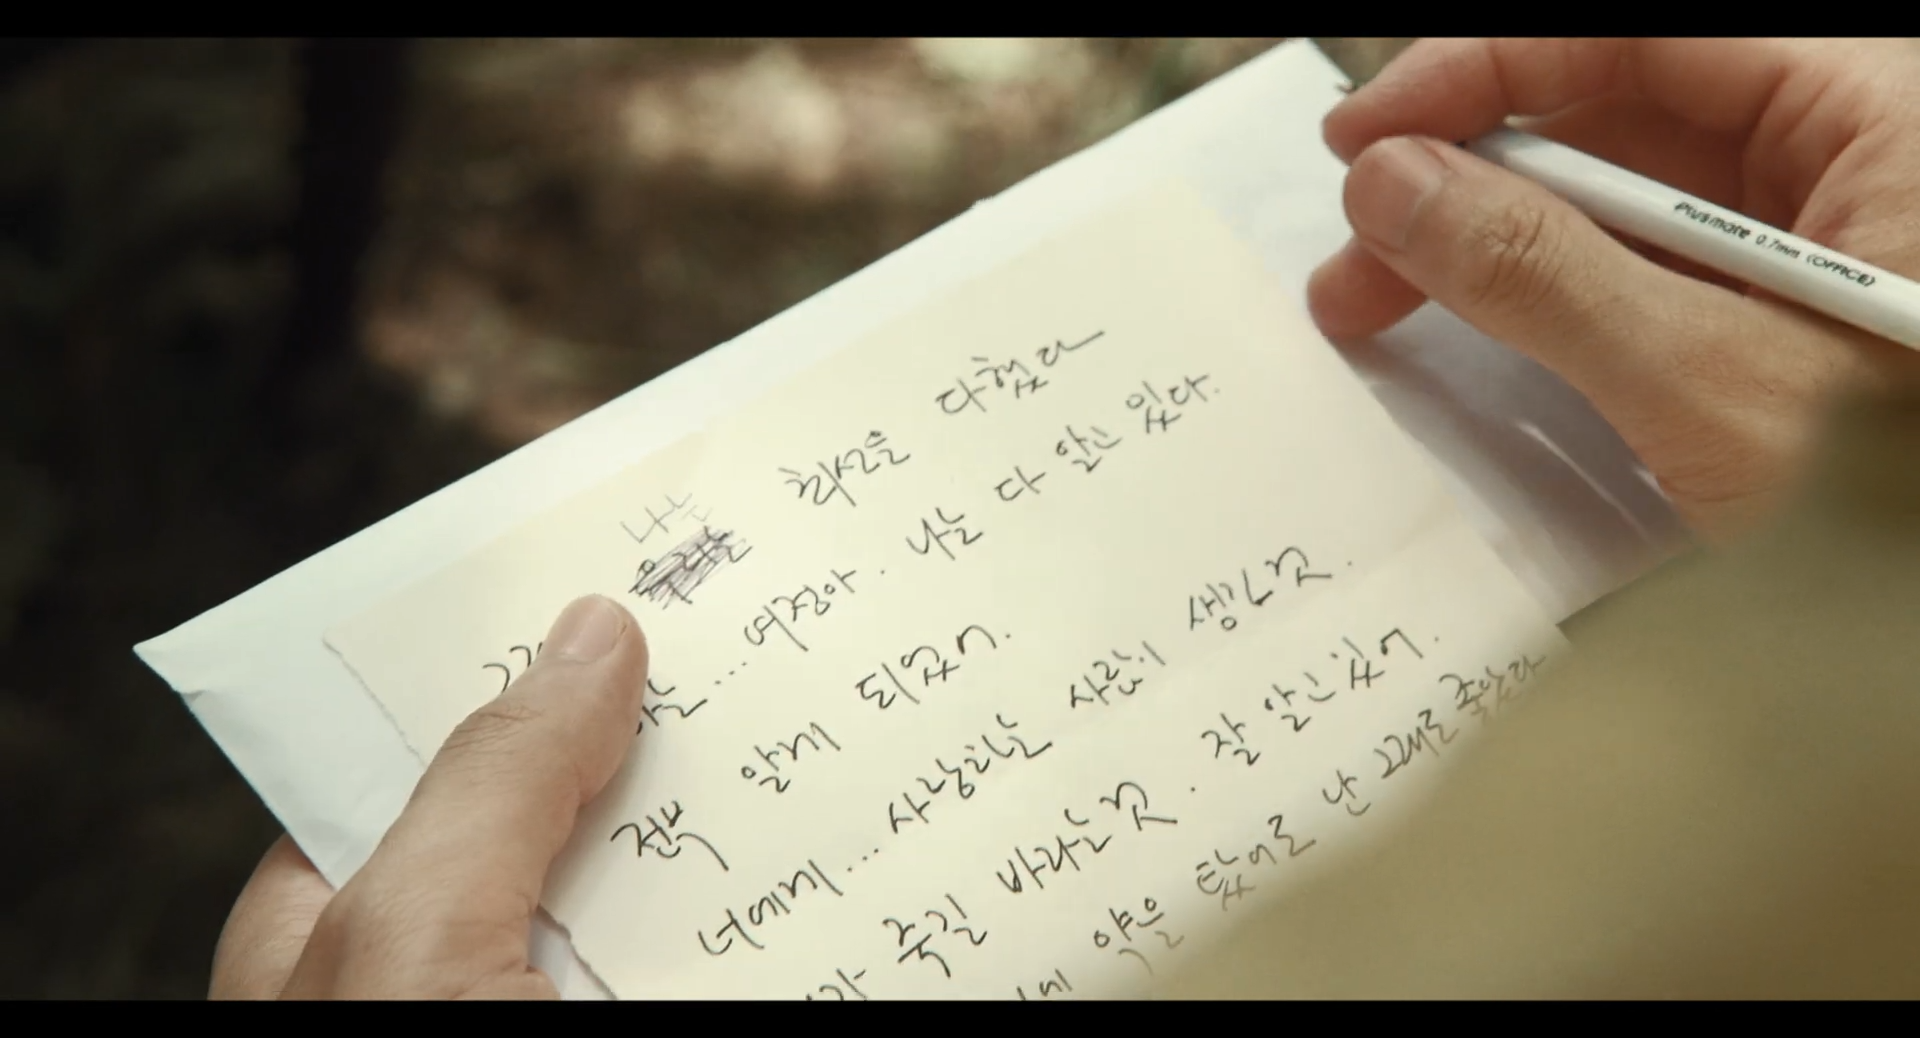 나는 최선을 다했다
여정아. 나는 다 알고 있다.
전부 알게 되었어.
너에게... 사랑하는 사람이 생긴 것.
죽길 바라는 것. 잘 알고 있어.
약을 탔어도 난 그대로
Plusmate 0.7mm (OFFICE)